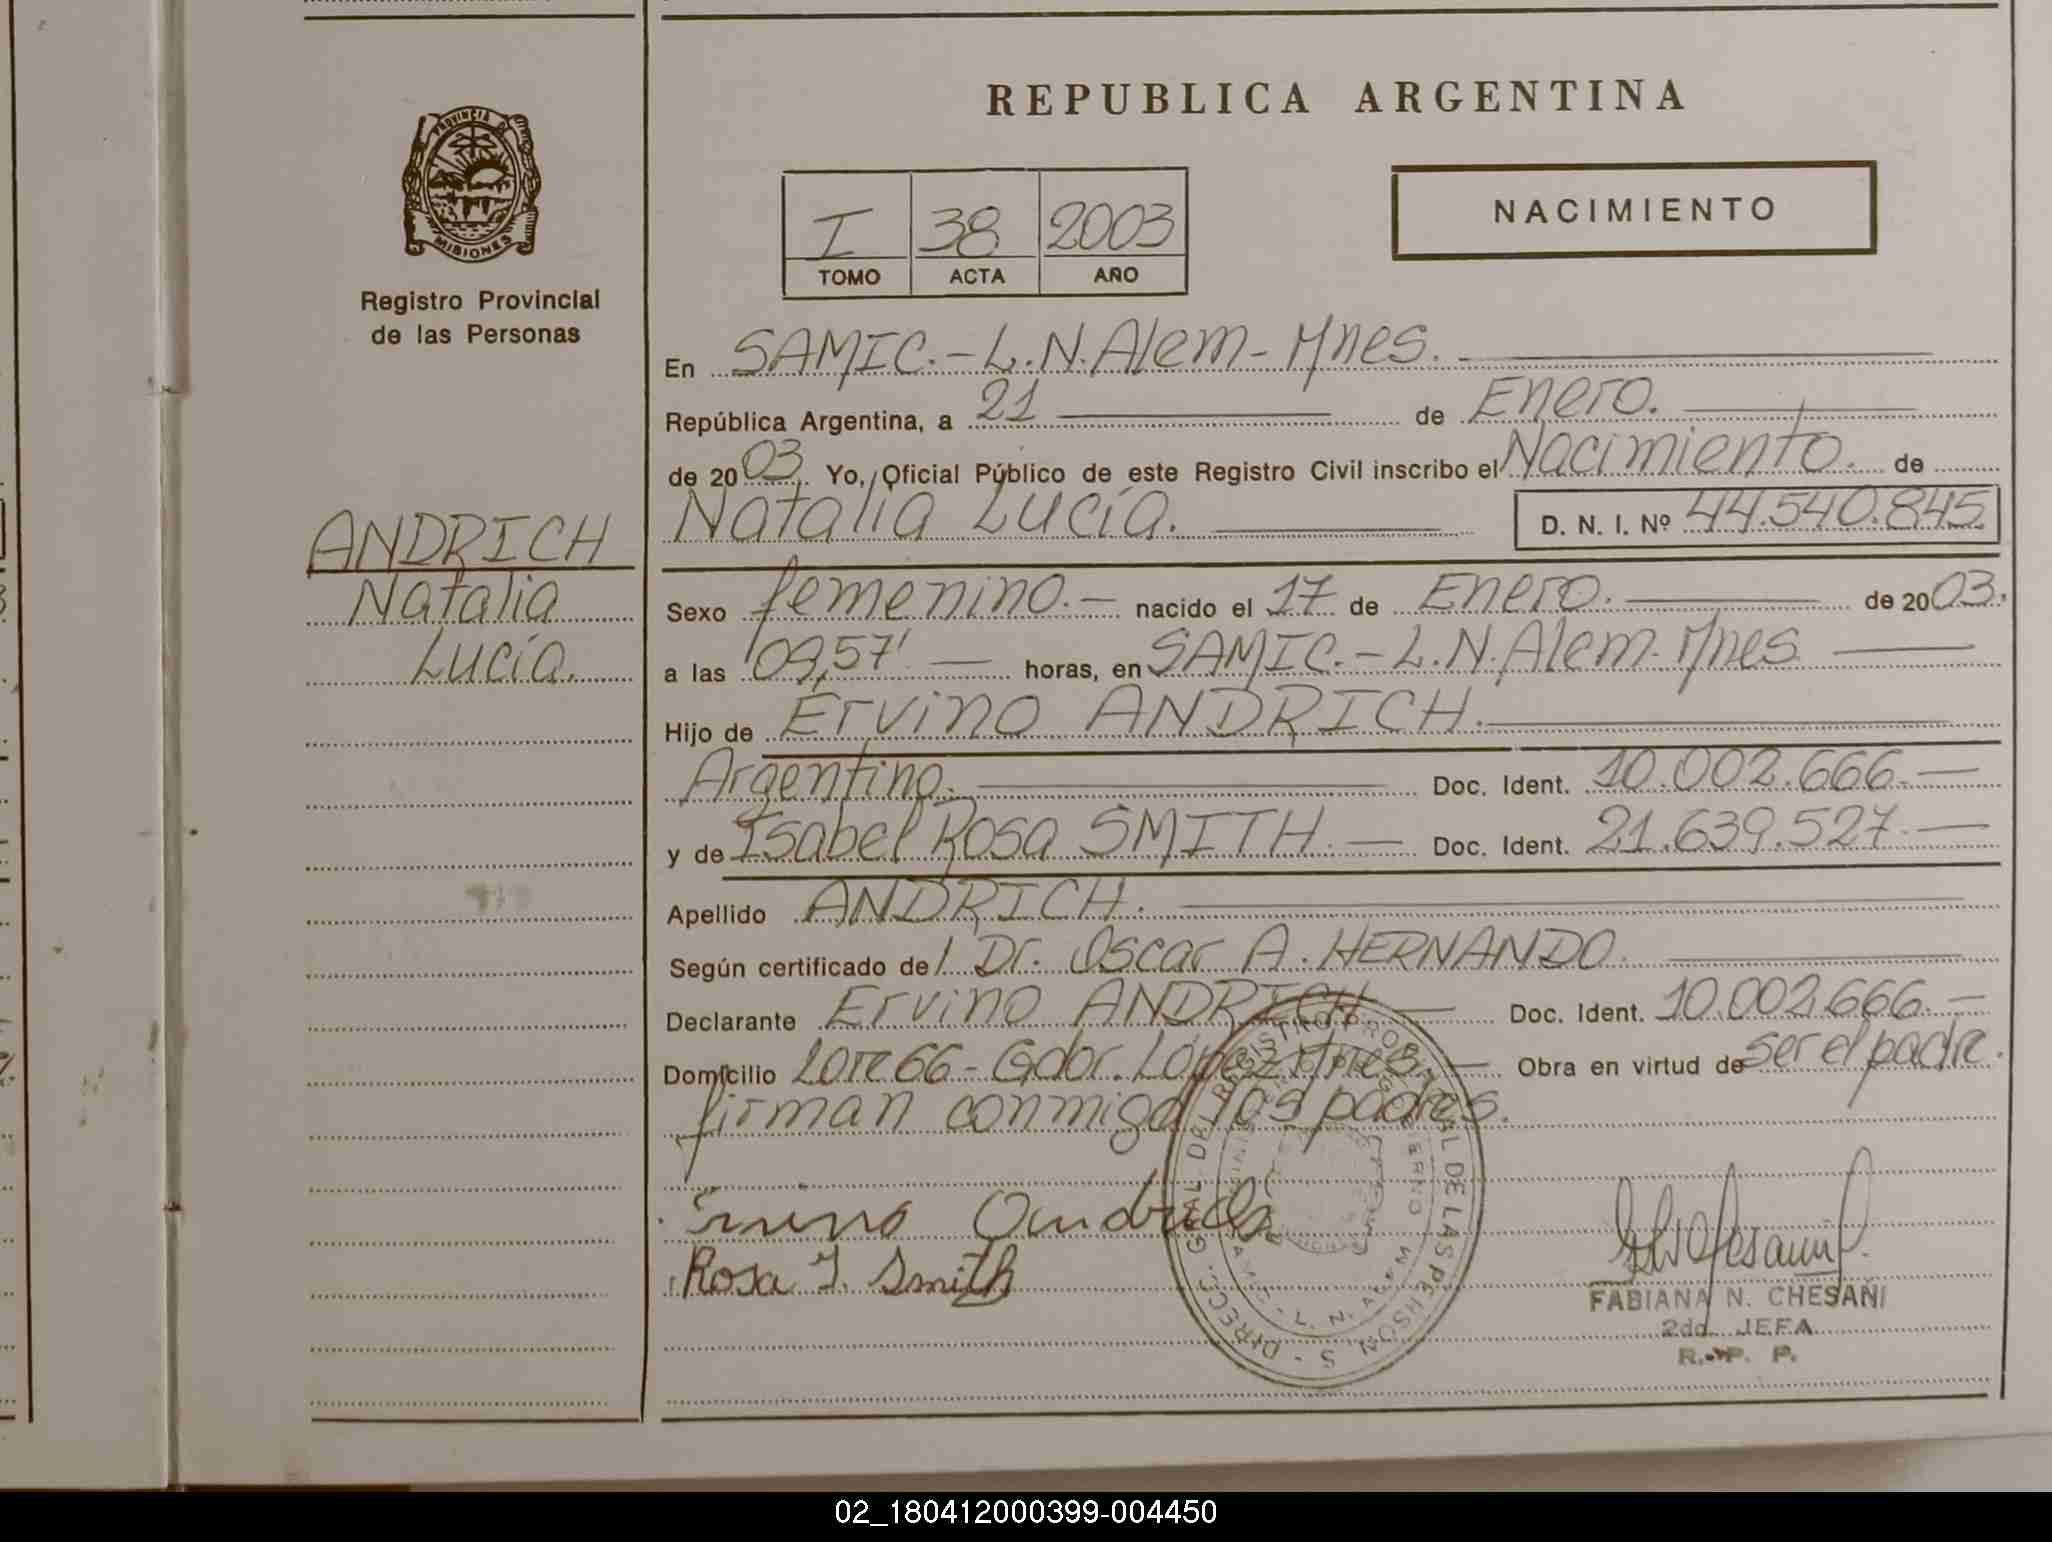 REPUBLICA ARGENTINA
PROVINCIA DE
MISIONES
Registro Provincial
de las Personas
I 38 2003
TOMO ACTA AÑO
NACIMIENTO
ANDRICH
Natalia
Lucía.
En SAMIC.-L.N.Alem-Mnes.
República Argentina, a 21 de Enero.
de 2003 Yo, Oficial Público de este Registro Civil inscribo el Nacimiento. de
Natalia Lucía. D. N. I. Nº 44.540.845
Sexo femenino.- nacido el 17 de Enero. de 2003.
a las 09,57' horas, en SAMIC.-L.N.Alem-Mnes
Hijo de Ervino ANDRICH.
Argentino. Doc. Ident. 10.002.666.-
y de Isabel Rosa SMITH.- Doc. Ident. 21.639.527.-
Apellido ANDRICH.
Según certificado del Dr. Oscar A. HERNANDO.
Declarante Ervino ANDRICH Doc. Ident. 10.002.666.-
Domicilio Lote 66-Gdor. López-Mnes.- Obra en virtud de ser el padre.
firman conmigo los padres.
Ervino Andrich
Rosa I. Smith
DIRECC. GRAL. DEL REGISTRO PROVINCIAL DE LAS PERSONAS
FABIANA N. CHESAÑI
2da. JEFA
R. P. P.
02_180412000399-004450